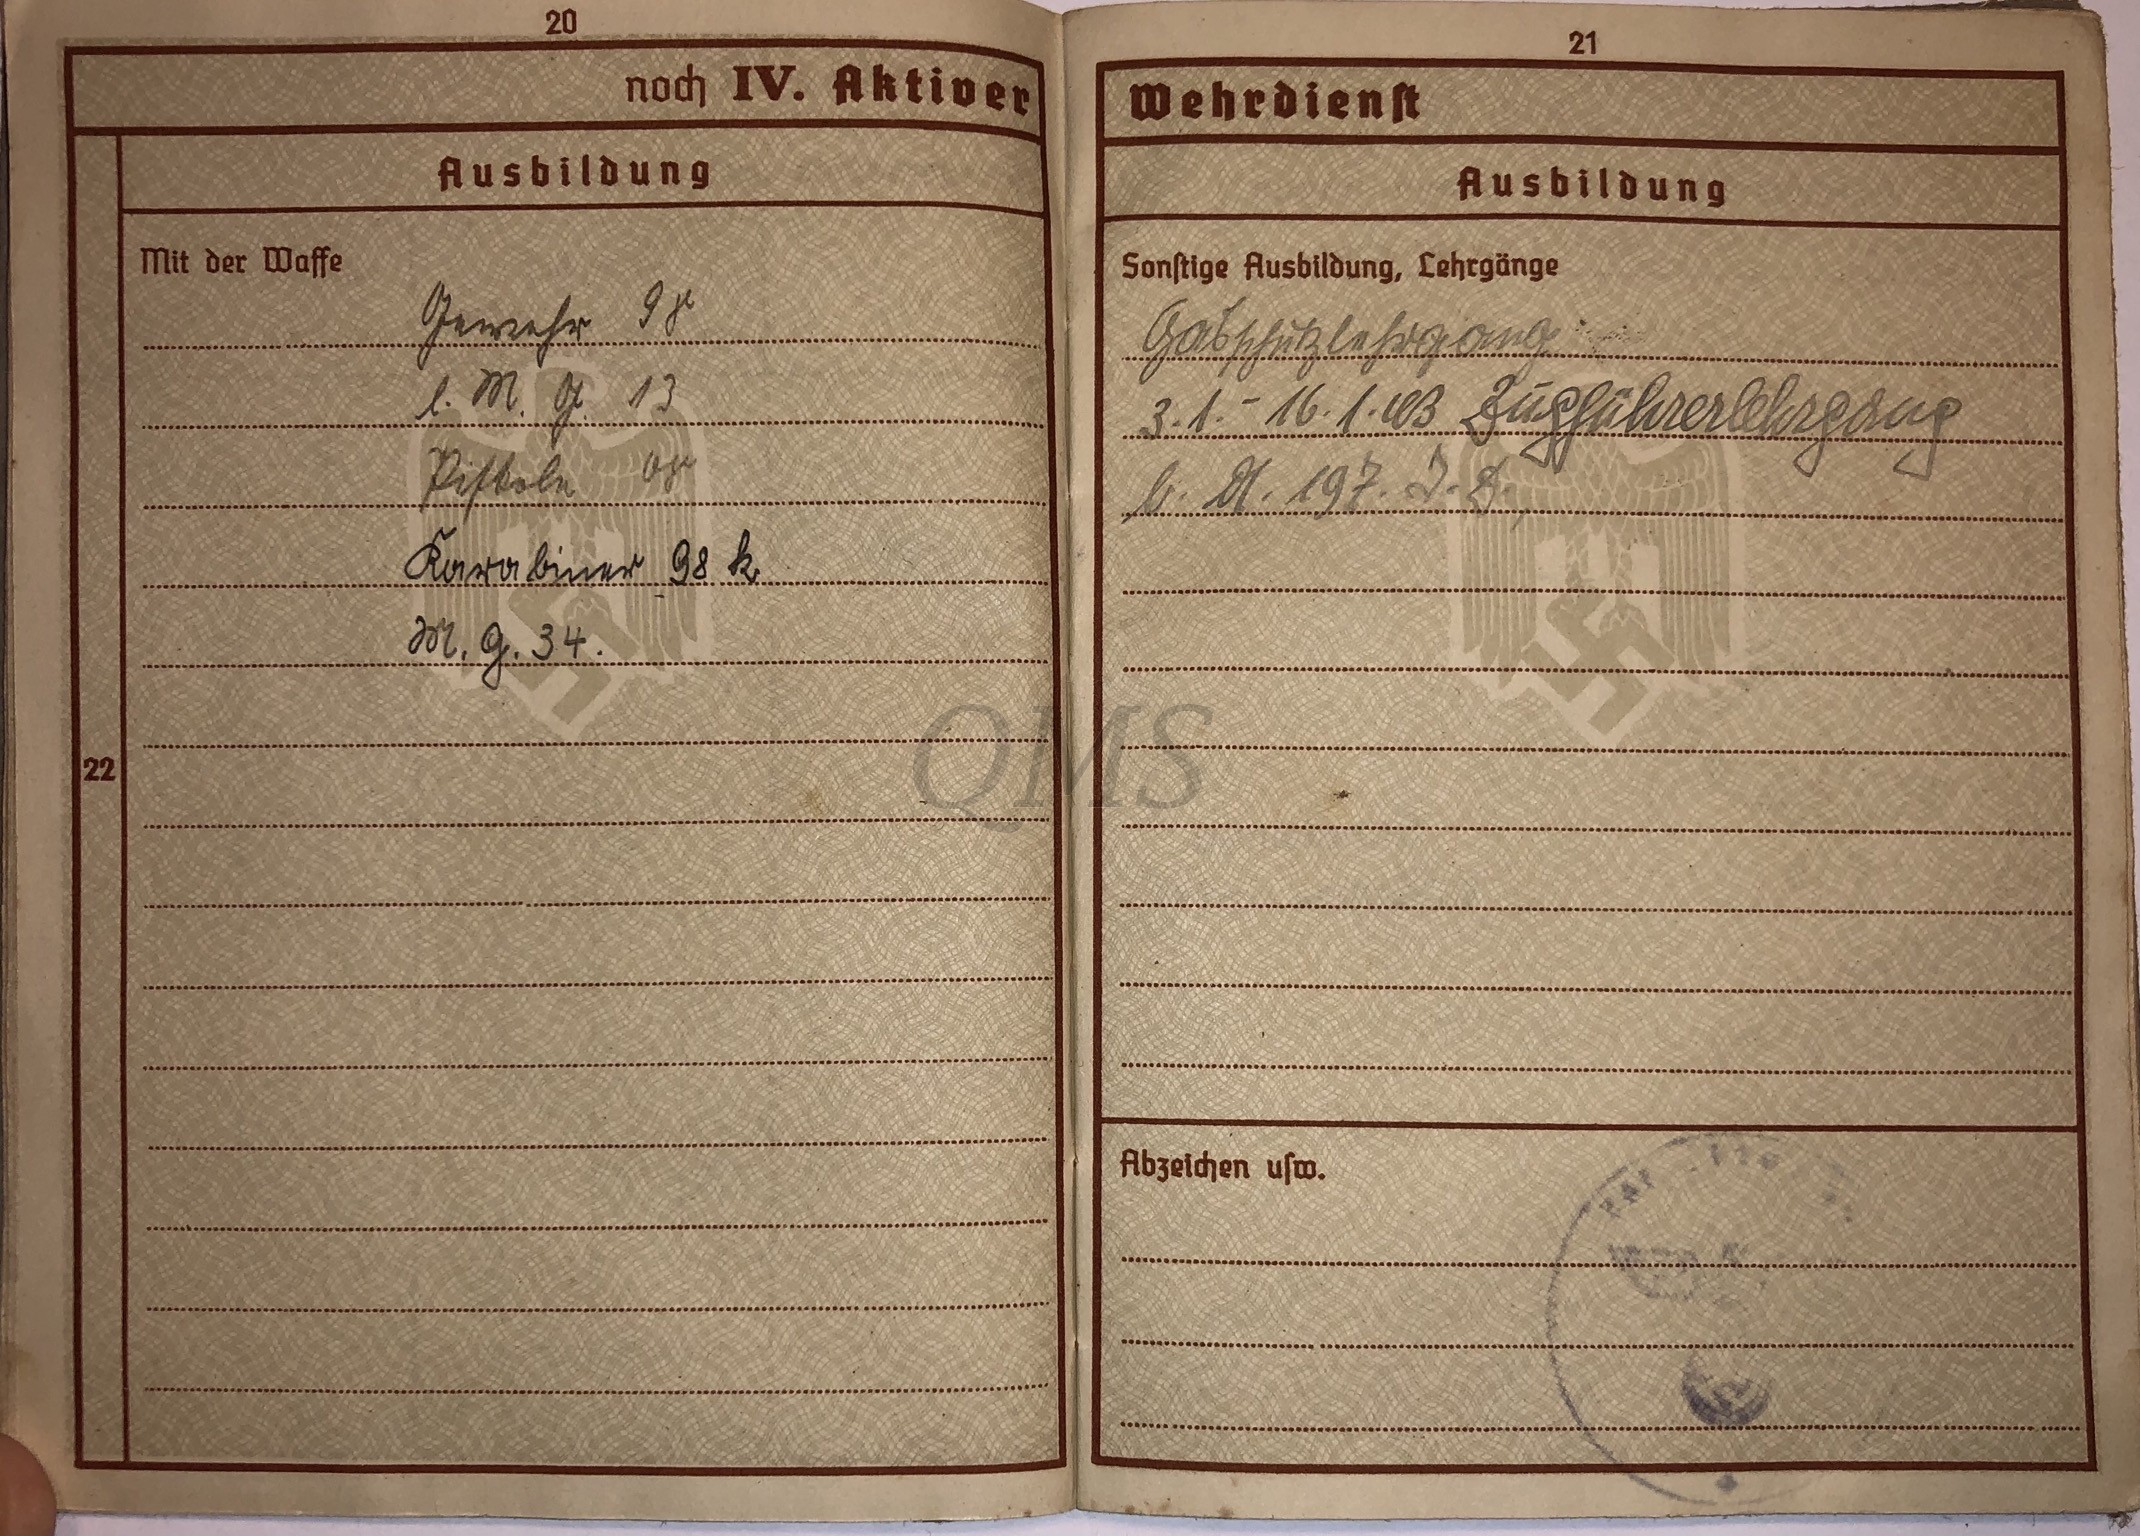 20
noch IV. Aktiver
Ausbildung
Mit der Waffe
Gewehr 98
l. M. G. 13
Pistole 08
Karabiner 98 k
M. G. 34.
22
21
Wehrdienst
Ausbildung
Sonstige Ausbildung, Lehrgänge
Gasschutzlehrgang
3.1.-16.1.43 Zugführerlehrgang
b. d. 197. I. D.
Abzeichen usw.
QMS